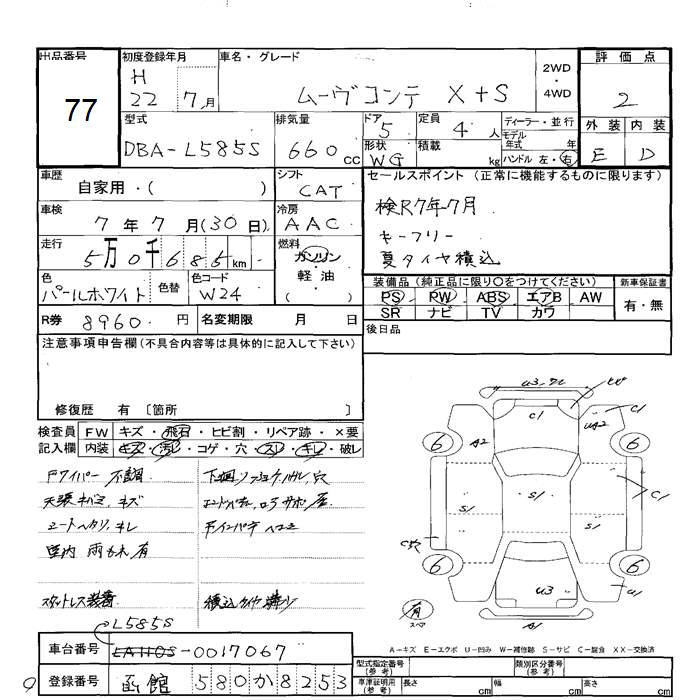 出品番号 初度登録年月 車名・グレード 評価点
77
H
22 7月
ムーヴコンテ X+S
2WD ・ 4WD
2
型式 排気量 ドア 定員 ディーラー・並行
DBA-L585S 660cc 5 4人
モデル年式 年
形状 積載
WG kg
ハンドル 左・右
外装 内装
E D
車歴 シフト セールスポイント (正常に機能するものに限ります)
自家用・( ) CAT
車検 冷房
7年7月(30日) AAC
検R7年7月
キーフリー
夏タイヤ積込
走行 燃料
5万0千685km
ガソリン
軽油
( )
色 色替 色コード
パールホワイト W24
装備品 (純正品に限り○をつけてください) 新車保証書
PS PW ABS エアB AW
SR ナビ TV カワ
有・無
R券 8960円 名変期限 月 日
後日品
注意事項申告欄(不具合内容等は具体的に記入して下さい)
修復歴 有 〔箇所 〕
検査員 FW キズ・飛石・ヒビ割・リペア跡・×要
記入欄 内装 キズ・汚レ・コゲ・穴・スレ・キレ・破レ
Fワイパー 不調
天張キバミ、キズ
シートヘタリ、キレ
室内 雨もれ 有
スタットレス装着
積込タイヤ溝少
U3
C1
C1
A2
UA2
6
6
S1
S1
S1
C1
C穴
6
6
U3
U1
A1
有
スペア
A-キズ E-エクボ U-凹み W-補修跡 S-サビ C-腐食 XX-交換済
L585S
車台番号 LA110S-0017067
登録番号 函館 580か8253
9
型式指定番号(参考) 類別区分番号(参考)
車庫証明用(参考) 長さ cm 幅 cm 高さ cm